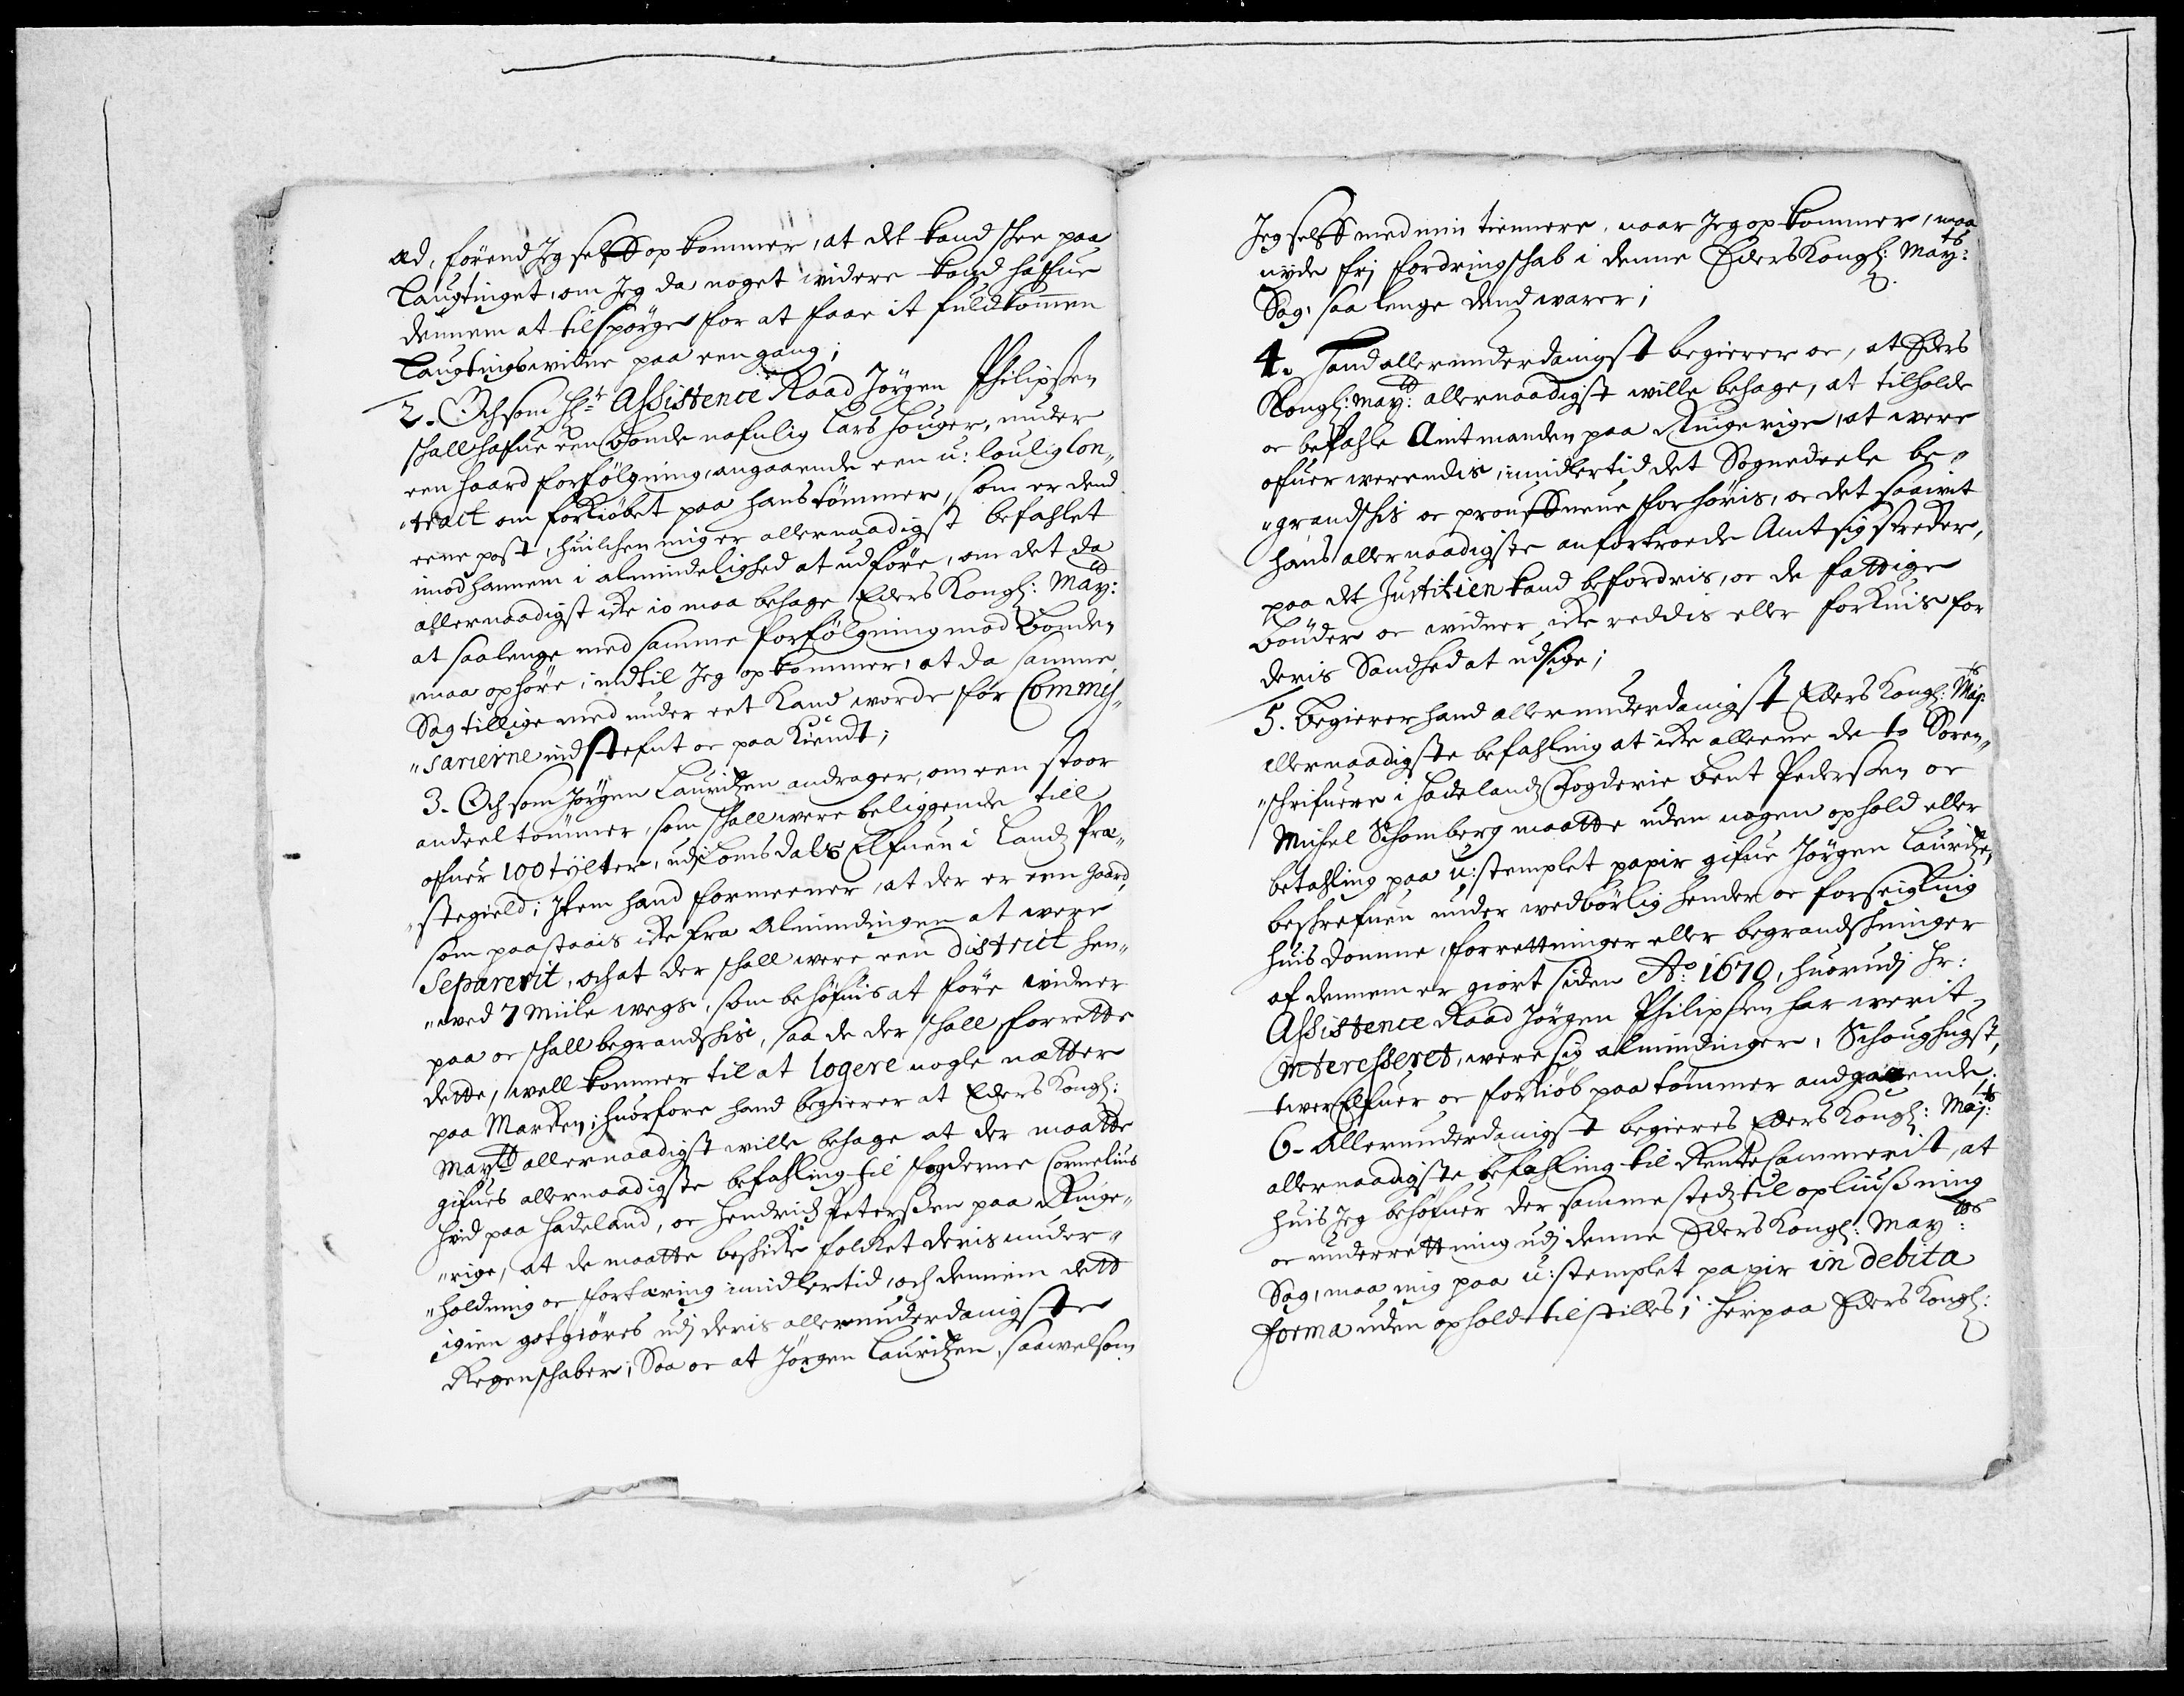 æd, förend Jeg selff op kommer, at det kand skee paa
Laugtinget, om Jeg da noget widere kand haffue
dennem at tilspörge for at faae it fuldkommen
Laugtings widne paa een gang;
2. Och som Hr: Assistence Raad Jörgen Philipsen
shall hafue een Bonde nafnlig Lars Houger, under
een haard forfölgning, angaaende een u: loulig Con„
„tract om forkiöbet paa hans tömmer, som er dend
eene post, huilchen mig er allernaadigst befahlet
imod hannem i almindelighed at udföre, om det da
allernaadigst icke io maa behage Eders Kongl: May:
at saalenge med samme forfölgning mod Bonden
maa ophöre, indtil Jeg op kommer, at da samme
Sag tillige med under eet kand worde for Commis„
„sarierne ind stefnt oc paa kiendt;
3. Och som Jörgen Lauritzen andrager, om een stoor
andeel tömmer, som shall were beliggende till
ofuer 100 tÿlter, udj Tomsdals Elfuen i Landz Præ„
„stegield; Jtem hand formeener, at der er een gaard,
som paastaais icke fra Almindingen at were
Separerit, och at der shall were een district hen„
„ved 7 Miile wegs, som behöfuis at före widner
paa oc shall begrandshis, saa de der shall forrette
dette, well kommer til at logere nogle nætter
paa Marken; huorfore hand begierer at Eders Kongl:
Maytt allernaadigst wille behage at der maatte
gifues allernaadigste befahling til fogderne Cornelius
Hvid paa Hadeland, oc Hendrich Peterssen paa Ringe„
„rige, at de maatte beskicke folcket deris under„
„holdning oc fortæring imidlertid, och dennem dett
igien gotgiöres udj deris allerunderdanigste
Regenshaber; Saa oc at Jörgen Lauritzen, saawelsom
Jeg selff med min tiennere, naar Jeg op kommer, maa
nyde frj fordringshab i denne Eders Kongl: Mayts:
Sag, saa lenge dend warer;
4. Hand allerunderdanigst begierer oc, at Eders
Kongl: Maytt: allernaadigst wille behage, at tilholde
oc befahle Amtmanden paa Ringerige, at were
ofuer werendis, imidlertid det Sognedeele be„
„grandshis oc prouffuene forhöris, oc det saawit
hans allernaadigste anfortroede Amt sig streder,
paa det Justitien kand befordris, oc de fattige
Bönder oc widner icke reddis eller forkuis for
deris Sandhed at udsige;
5. Begierer hand allerunderdanigst Eders Kongl: Mayts:
allernaadigste befahling at icke alleene de to Soren„
„shrifuere i Hadelandz Fogderie Bent Pederssen oc
Michel Schomberg maatte uden nogen ophold eller
betahling paa u:stemplet papir gifue Jörgen Lauritzen
beshrefuen under wedbörlig hender oc forseigling
huis domme, forrettninger eller begrandshninger
af dennem er giort siden Ao: 1670, huorudj Hr:
Assistence Raad Jörgen Philipsen har werit
interesseret, were sig almindinger, Schoughugst,
twer Elfuer oc forkiöb paa tömmer andgaaende.
6. Allerunderdanigst begieres Eders Kongl: Mayts:
allernaadigste befahling til RenteCammerit, at
huis Jeg behöfuer der samme stedz til opliuusning
oc underrettning udj denne Eders Kongl: Maytts:
Sag, maa mig paa u:stemplet papir in debita
forma uden ophold tilstilles; Herpaa Eders Kongl: